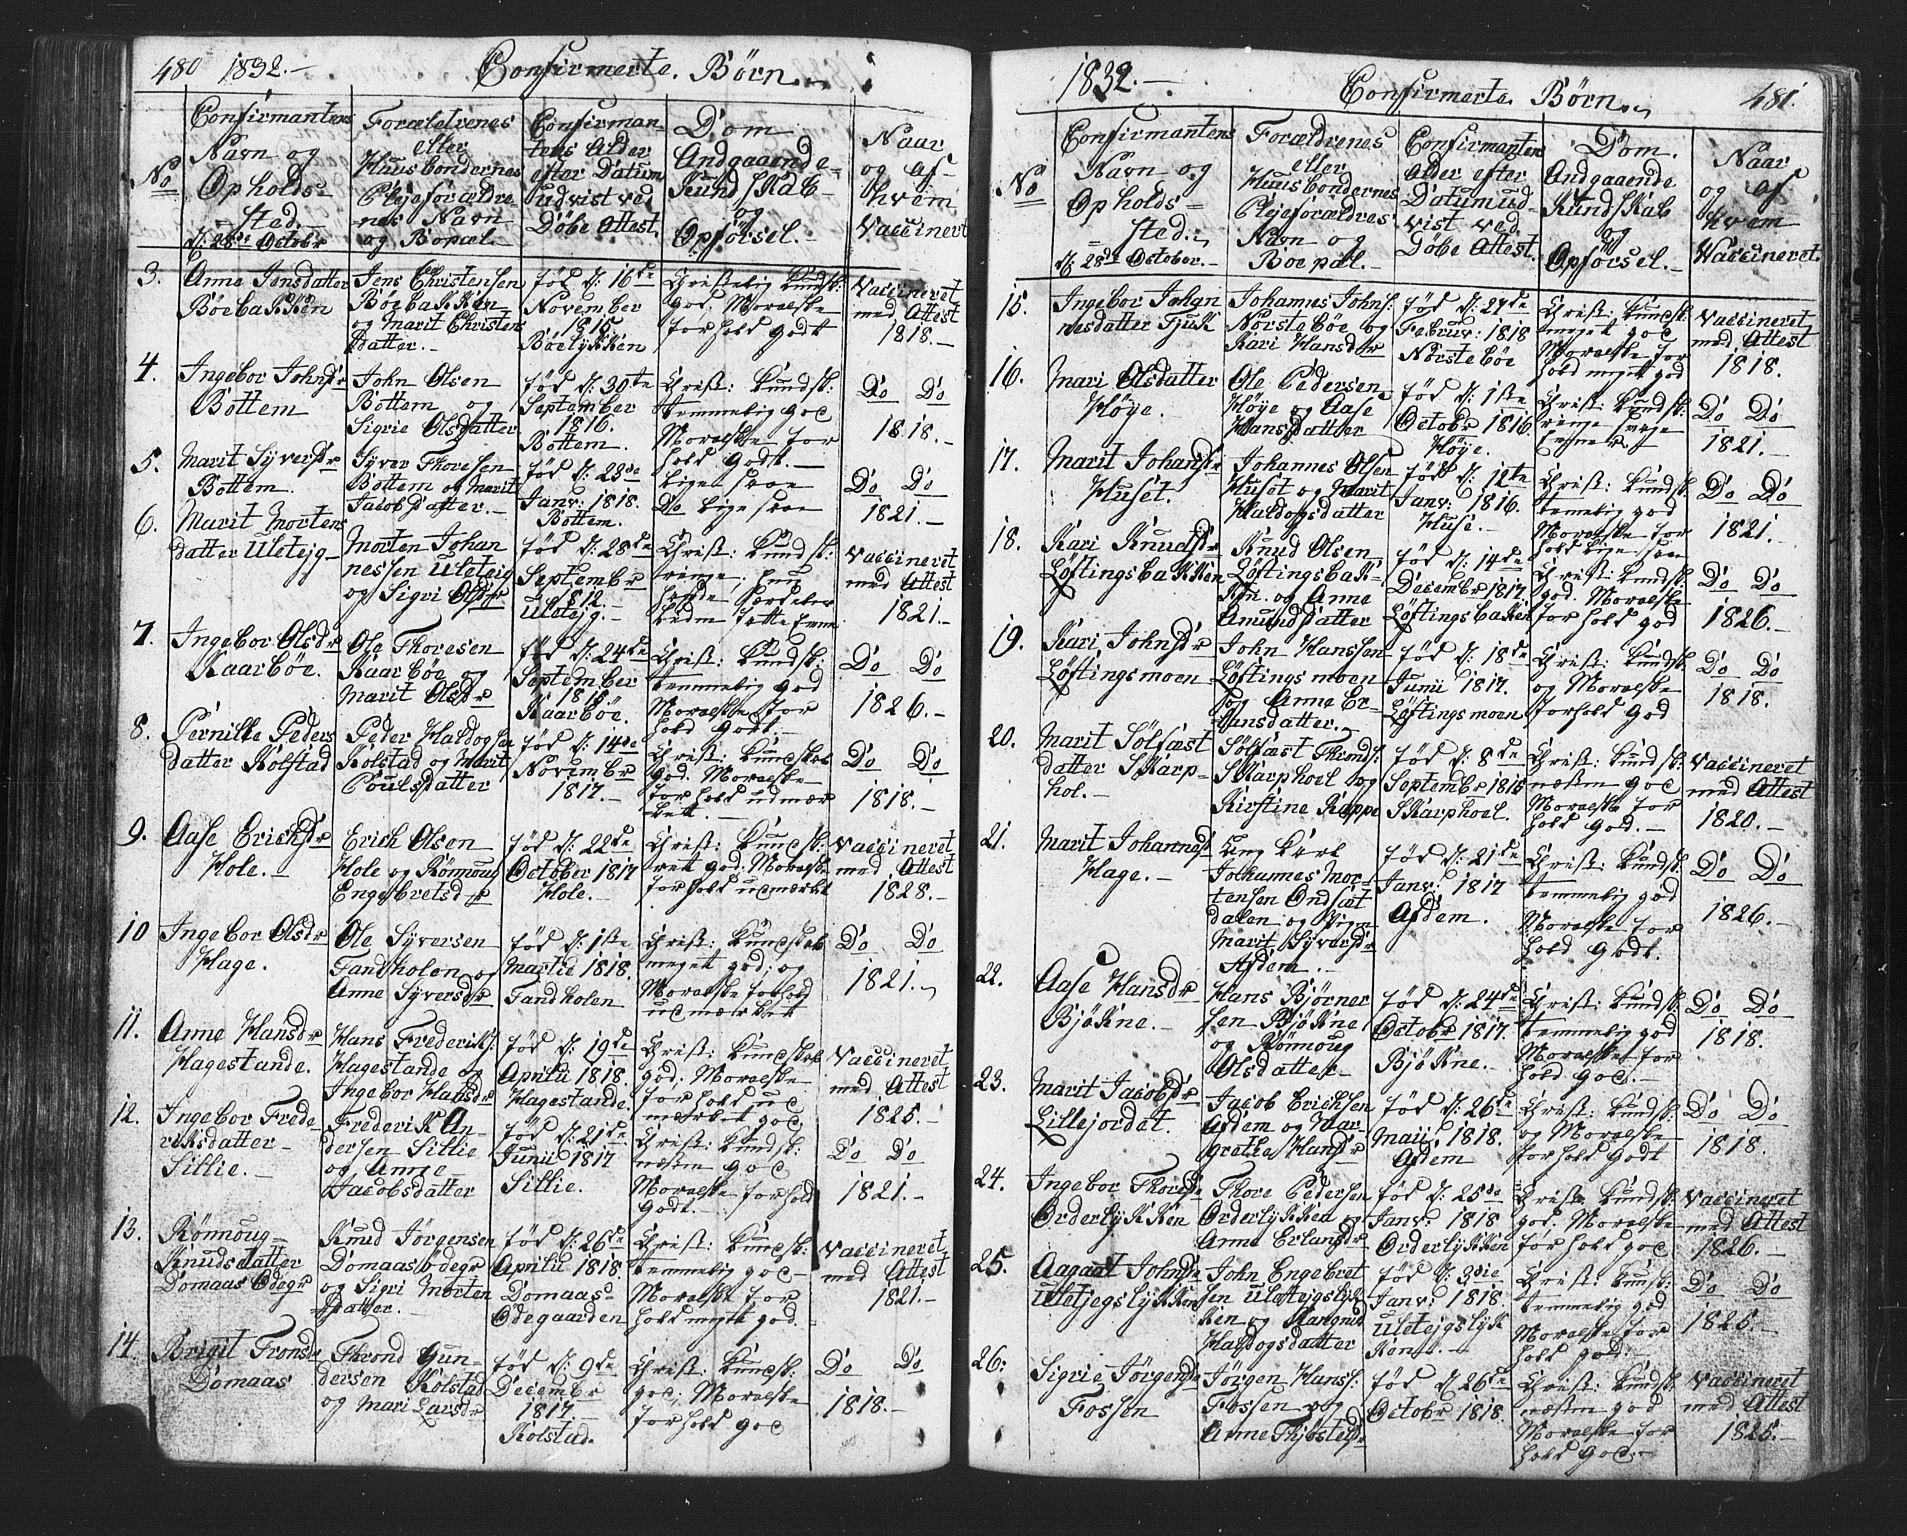 480 1832.- Confirmerte Børn.
No
Confirmantens Navn og Opholds-sted.
d: 28de Octobr
Forældrenes eller Huusbondernes Plejeforældrenes Navn og Bopæl.
Confirmantens Alder efter Datum udvist ved Døbe Attest.
Dom Andgaaende Kundskab og Opførsel.-
Naar og af hvem Vaccineret
3. Anne Jensdatter Bøebakken
Jens Christensen Bøebakken og Marit Christensdatter.-
fød d: 16de November 1815 Bøelykken
Christelig Kundsk: god, Moralske Forhold Godt
Vaccineret med Attest 1818.-
4. Ingebor Johnsdr Bottem
John Olsen Bottem og Sigrie Olsdatter
fød d: 30te September 1816. Bottem.
Christ: Kundsk: temmelig god Moralske Forhold Godt.-
Do Do 1818.-
5. Marit Syversdr Bottem.
Syver Thoresen Bottem og Marit Jacobsdatter.-
fød d: 23de Janv: 1818. Bottem.
Ligesaa
Do Do 1821.-
6. Marit Mortensdatter Uletejg-
Morten Johannessen Uleteig og Sigri Olsdr
fød d: 28de September 1812.- Uletejg.-
Christ: Kundsk: ringe;
Vaccineret med Attest 1821.-
7. Ingebor Olsdr Kaarbøe.
Ole Thoresen Kaarbøe og Marit Olsdr
fød d: 24de September 1818 Kaarbøe.
Christ: Kundsk: temmelig god Moralske Forhold Godt.-
Do Do 1826.-
8. Pernille Pedersdatter Kolstad
Peder Haldogsen Kolstad og Marit Poulsdatter
fød d: 14de November 1817.-
Christ: Kundskab God. Moralske Forhold udmærket.-
Do Do 1818.-
9. Aase Erichsdr Hole.-
Erich Olsen Hole og Rønnoug Engebretsdr
fød d: 22de October 1817 Hole.
Christ: Kundsk: ret god; Moralske Forhold udmærket
Vaccineret med Attest 1828.-
10 Ingebor Olsdr Hage.
Ole Syversen Tandholen og Anne Syversdr
fød d: 1ste Martie 1818. Tandholen
Christ: Kundskab meget god; og Moralske Forhold udmærket
Do Do 1821.-
11. Anne Hansdr Hagestande.
Hans Frederiks: Hagestande og Ingebor Hansdr
fød d: 19de Aprilii 1818. Hagestande.
Christ: Kundskab god; Moralske Forhold udmærket god
Vaccineret med Attest 1825.-
12. Ingebor Frederiksdatter Sillie.-
Frederik Andersen Sillie og Anne Jacobsdatter
fød d: 21de Junii 1817 Sillie.
Christ: Kundsk: næsten god Moralske Forhold Godt.-
Do Do 1821.-
13. Rønnoug Knudsdatter Domaas Ødegr
Knud Jørgensen Domaasødegr og Sigri Mortensdatter.-
fød d: 26de Aprilii 1818. Domaas Ødegaarden
Christ: Kundsk: temmelig god- Moralske Forhold meget god.
Vaccineret med Attest 1821.-
14. Brigit Tronsdr Domaas
Thrond Gundersen Kolstad og Mari Larsdr
fød d: 9de December 1817- Kolstad.
Christ: Kundsk: god; Moralske Forhold god
Do Do 1818.-
1832.- Confirmerte Børn. 481.
No
Confirmantens Navn og Opholds-sted.
d: 28de October.-
Forældrenes eller Huusbondernes Plejeforældres Navn og Boepæl.
Confirmantens Alder efter Datum udvist ved Døbe Attest.
Dom. Andgaaende Kundskab og Opførsel.-
Naar og af hvem Vaccineret.
15. Ingebor Johannesdatter Tjuk
Johannes Johns: Nørstebøe og Kari Hansdr
fød d: 27de Februv: 1818 Nørstebøe
Christ: Kundsk: meget god Moralske Forhold meget god
Vaccineret med Attest 1818.
16. Mari Olsdatter Høye.-
Ole Pedersen Høye og Aase Hansdatter
fød d: 1ste Octobr 1816 Høye.
Christ: Kundsk: ringe
Do Do 1821.-
17. Marit Johansdr Huset.
Johannes Olsen Huset og Marit Haldogsdatter
fød d: 12te Janv: 1816. Huse.-
Christ: Kundsk: temmelig god Moralske Forhold ligesaa
Do Do 1821.-
18. Kari Knudsdr Løftingsbakken
Knud Olsen Løftingsbakken. og Anne Amundsdatter
fød d: 14de Decembr 1817 Løftingsbaken
Christ: Kundsk: god. Moralske Forhold god
Do Do 1826.-
19. Kari Johnsdr Løftingsmoen
John Hanssen Løftingsmoen og Anne Erlansdatter.-
fød d: 18de Junii 1817. Løftingsmoen
Christ: Kundsk: og Moralske Forhold God
Do Do 1818.-
20. Marit Sølfæstdatter Skarphol.
Sølfæst Thronds: Skarphoel og Kirstine Rappe
fød d: 8de Septembr 1815 Skarphoel.
Christ: Kundsk: næsten god Moralske Forhold God.-
Vaccineret med Attest 1820.-
21. Marit Johannesd Hage.-
Johannes Mortensen Ondsætdalen og Marit Syversdr Afdem.-
fød d: 21de Janv: 1817 Afdem.
Christ: Kundsk: temmelig god Moralske Forhold Godt.
Do Do 1826.-
22. Aase Hansdr Bjøkne.-
Hans Bjørnersen Bjøkne og Rønnoug Olsdatter
fød d: 24de Octobr 1817. Bjøkne.-
Christ: Kundsk: temmelig god Moralske Forhold God.-
Do Do 1818.-
23. Marit Jacobsdr Lillejordet.
Jacob Erichsen Afdem og Margrethe Hansdr
fød d: 26de Maii 1818. Afdem
Christ: Kundsk: og Moralske Forhold Godt
Do Do 1818.-
24. Ingebor Thoresdr Orderlykken
Thore Pedersen Orderlykken og Anne Erlansdr
fød d: 25de Janv: 1818 Orderlykken
Christ: Kundsk: god. Moralske Forhold god:
Vaccineret med Attest 1826.-
25. Aagaat Johnsdr Uletjegslykken
John Engebretsen Uletejgslykken og Rangnid Haldogsdatter
fød d: 3die Janv: 1818. Uletejgslykken.-
Christ: Kundsk: temmelig god Moralske Forhold god.-
Do Do 1825.-
26: Sigrie Jørgensdr Fossen
Jørgen Hans: Fossen og Anne Thjøstelsdr
fød d: 26de Octobr 1818.
Christ: Kundsk: næsten god Moralske Forhold God.-
Vaccineret med Attest 1825.-